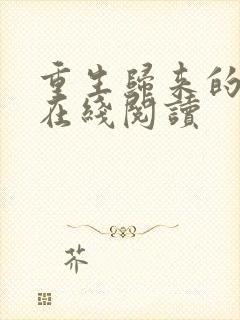 重生歸來的
在綫閱讀
芥